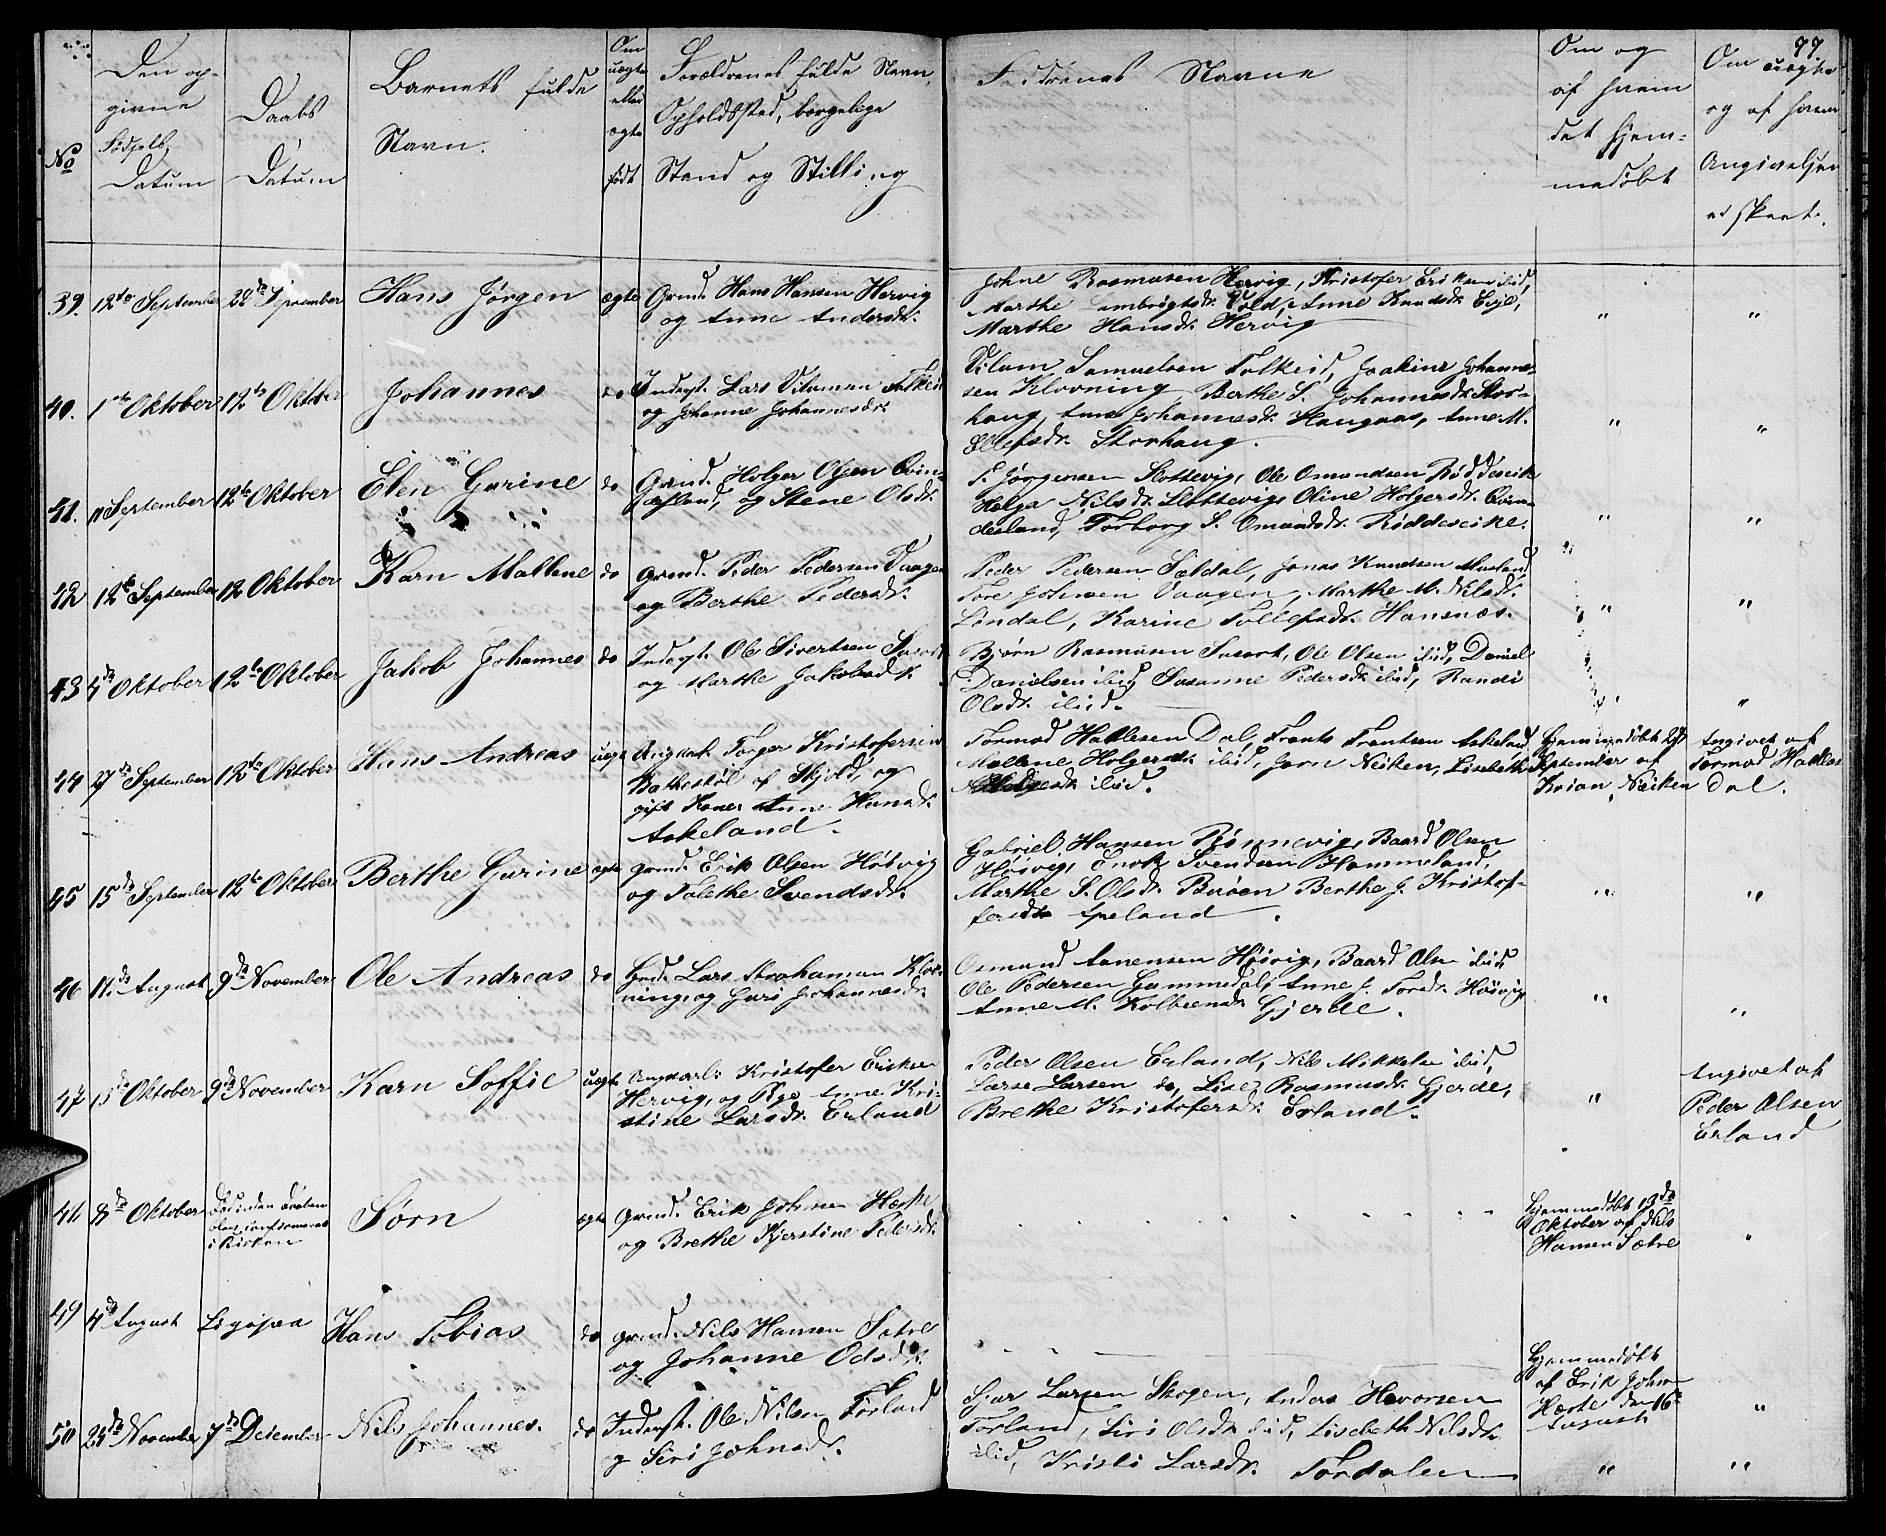 99
No
Den op-
givne
Fødsels
Datum
Daabs
Datum
Barnets fulde
Navn.
Om
uægte
eller
ægte
født
Forældrenes fulde Navn,
Opholdssted, borgelige
Stand og Stilling
Faddrenes Navne
Om og
af hvem
det hjem-
medøbt
Om uægte
og af hvem
Angivelsen
er skeet.
39. 12te September 28de September Hans Jørgen ægte Grmd. Hans Hansen Hervig
og Anne Andersdr.
Johne Rasmusen Hervig, Kristofer Eriksen ibid,
Marthe Lambrigtsdr. Anne Knudsdr. Eije,
Marthe Hansdr. Hervig
" "
40. 1ste Oktober 12te Oktober Johannes do Inderst. Lars Vilumsen
og Johanne Johannesdr.
Vilum Samuelsen Falkeid, Joakim Johanne-
sen Klovning, Berthe S. Johannesdr. Stor-
haug, Anne Johannesdr. Haugaas, Anne M.
Ellefsdr. Storhaug.
" "
41. 11 September 12te Oktober Elen Gurine do Grmd. Holger Olsen Qvin-
desland, og Stene Olsdr.
S. Jørgensen Slottevig, Ole Omundsen Røddeseike
Helga Nilsdr. Slottevig, Oline Holgersdr. Qvin-
desland, Torborg S. Omundsdr. Røddeseike.
" "
42 12te September 12 Oktober Karn Mallene do Grmd. Peder Pedersen Vaagen
og Berthe Pedersdr.
Peder Pedersen Sældal, Jonas Knudsen
Tore Johnsen Vaagen, Marthe M. Nilsdr.
Lindal, Karine Tollefsdr. Hansnæs.
" "
43 4de Oktober 12te Oktober Jakob Johannes do Inderst. Ole Sivertsen Susort
og Marthe Jakobsdr.
Bjørn Rasmusen Susort, Ole Olsen ibid, Daniel
Danielsen ibid, Susanne Pedersdr. ibid, Randi
Olsdr. ibid.
" "
44 27de September 12te Oktober Hans Andreas uægte Ungkarl Torger Kristofersen
af Skjold, og
gift Kone Anne Hansdr.
Askeland.
Tormod Hallesen Dal, Frants Frantsen Askeland
Mallene Holgersdr. ibid, Jorn Neiken, Lisebeth
ibid.
Hjemmedøbt 27de
September af
Krian, Neiken
Angivet af
Tormod Halles
Dal.
45 15de September 12te Oktober Berthe Gurine ægte Grmd. Erik Olsen Høivig
og Talethe Svendsdr.
Gabriel Hansen Rønnevig, Baard Olsen
Høivig, Enok Svendsen Hammeland,
Marthe S. Olsdr. Børøen Berthe J. Kristof-
fersdr. Apeland.
" "
46 11de August 9de November Ole Andreas do Grd. Lars Abrahamsen Klov-
ning, og Guri Johannesdr.
Osmund Aanensen Høivig, Baard Olsen ibid,
Ole Pedersen Gammedal, Anne J. Torsdr. Høivig
Anne M. Kolbensdr. Gjerde.
" "
47 15de Oktober 9de November Karn Soffie uægte Ungkarl Kristofer Eriksen
Hervig, og Pige Anne Kri-
stine Larsdr. Erland
Peder Olsen Erland, Nils Mikkelsen ibid,
Larse Larsen do, Lise Rasmusdr. Gjerde,
Brethe Kristofersdr. Erland.
"
Angivet af
Peder Olsen
Erland
48 8de Oktober Død inden Daaben
blev confirmeret
i Kirken Sørn ægte Grmd. Erik Johnsen Hæste
og Brethe Kjerstine Pedersdr.
Hjemmedøbt 19de
Oktober af Nils
Hansen Sætre
"
49 4de August Ligesaa Hans Tobias do grmd. Nils Hansen Sætre
og Johanne Odsdr.
Hjemmedøbt
af Erik Johnsen
Hæste den 16de
August
"
50 25de November 7de Desember Nils Johannes. do Inderst. Ole Nilsen Førland
og Siri Johnsdr.
Sjur Larsen Skogen, Anders Hovorsen
Førland, Siri Olsdr. ibid, Lisebeth Nilsdr.
ibid, Kristi Larsdr. Førdalen
" "